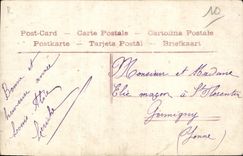 10
Post-Card – Carte Postale – Cartolina Postale
Postkarte – Tarjeta Postal – Briefkaart
Bonne et
heureuse année
Monsieur et Madame
Elie maçon à St Florentin
Germigny
(Yonne)